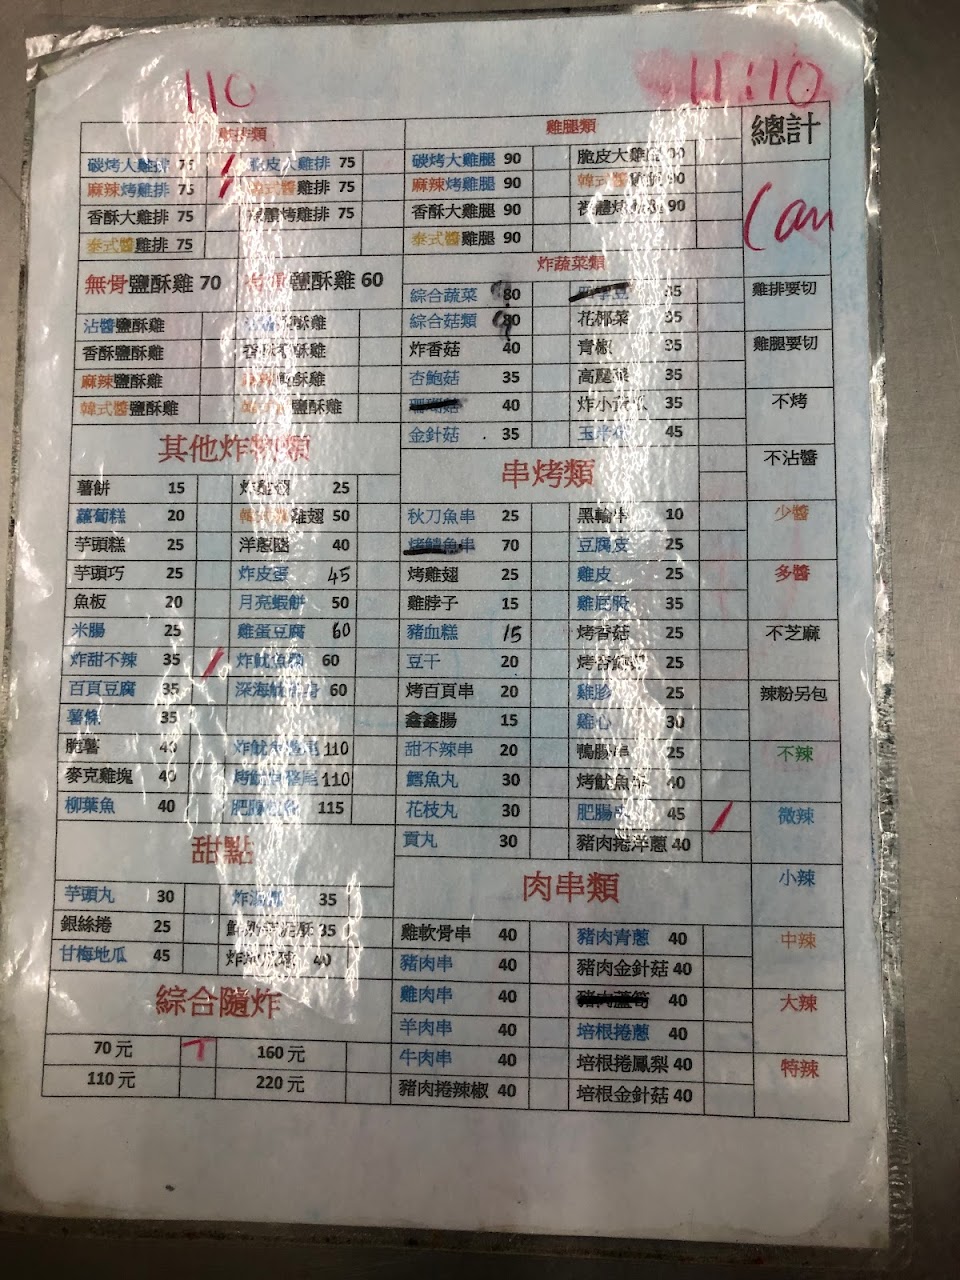 110 11:10
雞排類 雞腿類 總計
碳烤大雞排 75 脆皮大雞排 75 碳烤大雞腿 90 脆皮大雞腿 90
麻辣烤雞排 75 韓式醬雞排 75 麻辣烤雞腿 90 韓式醬 90
香酥大雞排 75 烤雞排 75 香酥大雞腿 90 90
泰式醬雞排 75 泰式醬雞腿 90
炸蔬菜類
無骨鹽酥雞 70 鹽酥雞 60
綜合蔬菜 80 35 雞排要切
沾醬鹽酥雞 酥雞 綜合菇類 花椰菜 35
香酥鹽酥雞 酥雞 炸香菇 40 青椒 35 雞腿要切
麻辣鹽酥雞 鹽酥雞 杏鮑菇 35 高麗菜 35
韓式醬鹽酥雞 鹽酥雞 珊瑚菇 40 35 不烤
金針菇 35 45
其他炸物類 串烤類 不沾醬
薯餅 15 25
蘿蔔糕 20 雞翅 50 秋刀魚串 25 黑輪串 10 少醬
芋頭糕 25 洋蔥圈 40 70 豆腐皮 25
芋頭巧 25 炸皮蛋 45 烤雞翅 25 雞皮 25 多醬
魚板 20 月亮蝦餅 50 雞脖子 15 雞屁股 35
米腸 25 雞蛋豆腐 60 豬血糕 15 烤香菇 25 不芝麻
炸甜不辣 35 炸魷魚 60 豆干 20 25
百頁豆腐 35 深海 60 烤百頁串 20 雞胗 25 辣粉另包
薯條 35 鑫鑫腸 15 雞心 30
脆薯 40 炸魷 110 甜不辣串 20 鴨腸串 25 不辣
麥克雞塊 40 烤魷 110 鱈魚丸 30 烤魷魚 40
柳葉魚 40 肥腸 115 花枝丸 30 肥腸 45 微辣
貢丸 30 豬肉捲洋蔥 40
甜點 肉串類 小辣
芋頭丸 30 炸湯圓 35
銀絲捲 25 35 雞軟骨串 40 豬肉青蔥 40 中辣
甘梅地瓜 45 40 豬肉串 40 豬肉金針菇 40
綜合隨炸 雞肉串 40 豬肉蘆筍 40 大辣
羊肉串 40 培根捲蔥 40
70 元 160 元 牛肉串 40 培根捲鳳梨 40 特辣
110 元 220 元 豬肉捲辣椒 40 培根金針菇 40